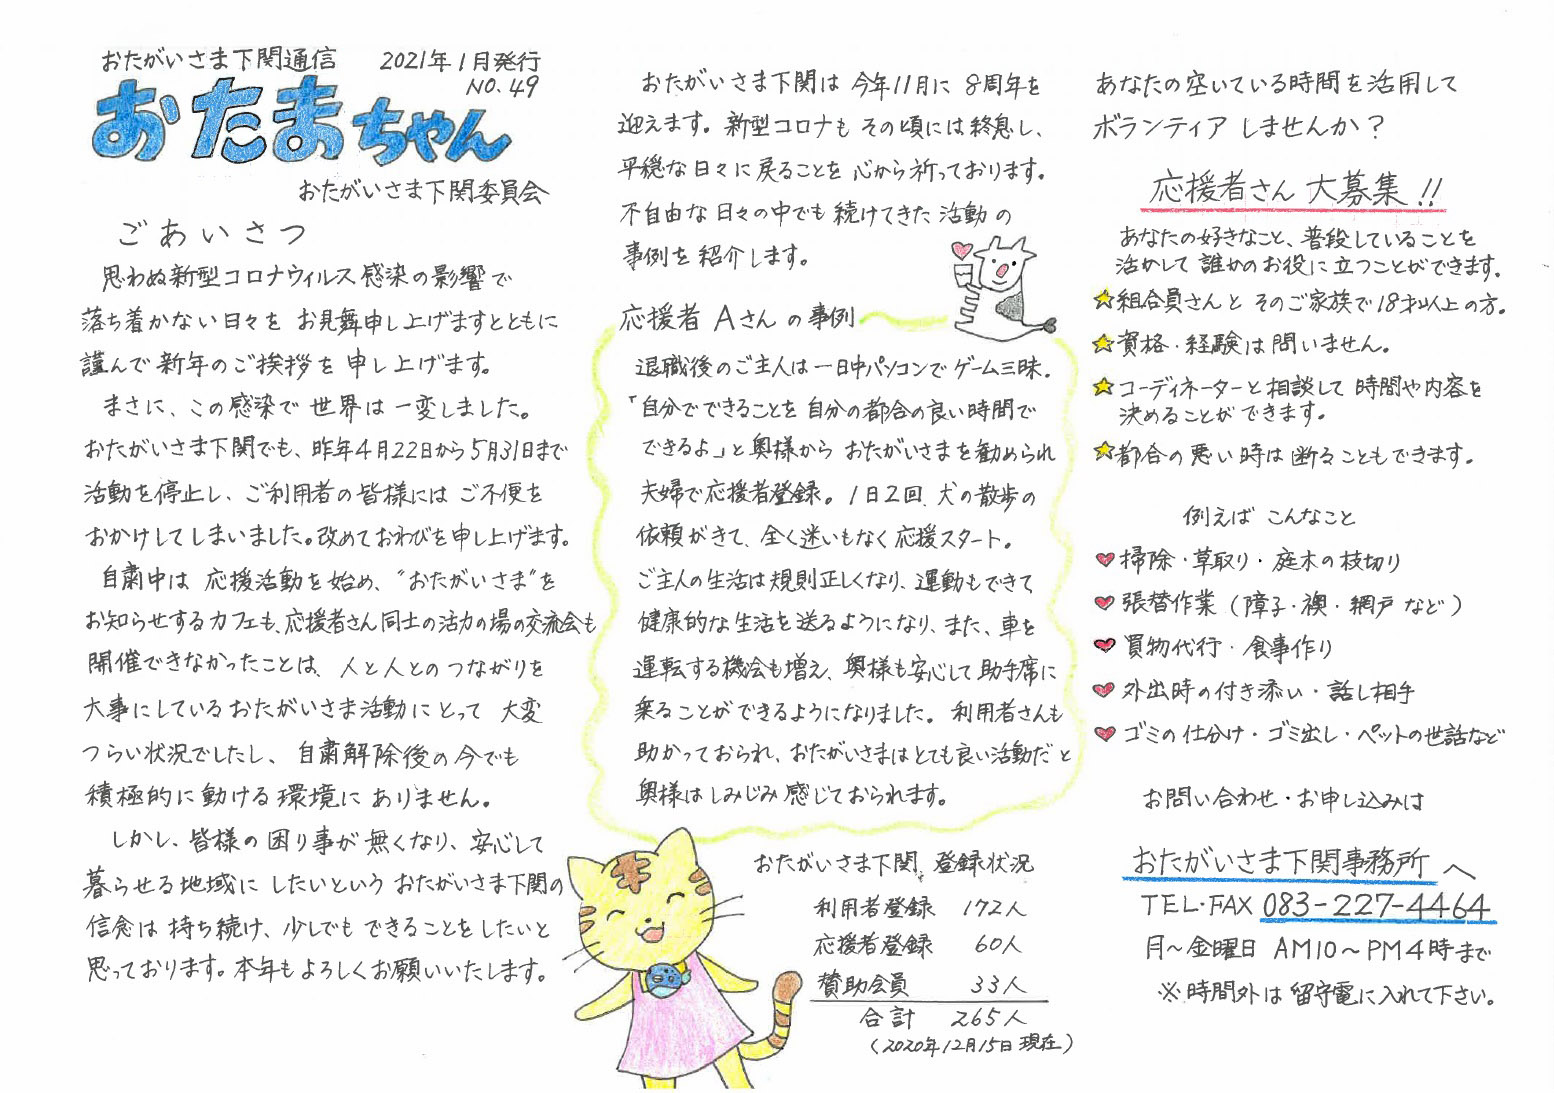 おたがいさま下関通信　2021年1月発行
NO.49
おたまちゃん
おたがいさま下関委員会
ごあいさつ
思わぬ新型コロナウィルス感染の影響で
落ち着かない日々を お見舞申し上げますとともに
謹んで新年のご挨拶を申し上げます。
まさに、この感染で世界は一変しました。
おたがいさま下関でも、昨年4月22日から5月31日まで
活動を停止し、ご利用者の皆様にはご不便を
おかけしてしまいました。改めておわびを申し上げます。
自粛中は 応援活動を始め、"おたがいさま"を
お知らせするカフェも、応援者さん同士の活力の場の交流会も
開催できなかったことは、人と人とのつながりを
大事にしているおたがいさま活動にとって 大変
つらい状況でしたし、自粛解除後の今でも
積極的に動ける環境にありません。
しかし、皆様の困り事が無くなり、安心して
暮らせる地域にしたいというおたがいさま下関の
信念は持ち続け、少しでもできることをしたいと
思っております。本年もよろしくお願いいたします。
おたがいさま下関は今年11月に8周年を
迎えます。新型コロナもその頃には終息し、
平穏な日々に戻ることを心から祈っております。
不自由な日々の中でも続けてきた活動の
事例を紹介します。
応援者Aさんの事例
退職後のご主人は一日中パソコンでゲーム三昧。
「自分でできることを自分の都合の良い時間で
できるよ」と奥様からおたがいさまを勧められ
夫婦で応援者登録。1日2回、犬の散歩の
依頼がきて、全く迷いもなく応援スタート。
ご主人の生活は規則正しくなり、運動もできて
健康的な生活を送るようになり、また、車を
運転する機会も増え、奥様も安心して助手席に
乗ることができるようになりました。利用者さんも
助かっておられ、おたがいさまはとても良い活動だと
奥様はしみじみ感じておられます。
おたがいさま下関、登録状況
利用者登録 172人
応援者登録 60人
賛助会員 33人
合計 265人
(2020年12月15日現在)
あなたの空いている時間を活用して
ボランティアしませんか?
応援者さん大募集!!
あなたの好きなこと、普段していることを
活かして誰かのお役に立つことができます。
☆組合員さんとそのご家族で18才以上の方。
☆資格・経験は問いません。
☆コーディネーターと相談して時間や内容を
決めることができます。
☆都合の悪い時は断ることもできます。
例えばこんなこと
♥掃除・草取り・庭木の枝切り
♥張替作業(障子・襖・網戸など)
♥買物代行・食事作り
♥外出時の付き添い・話し相手
♥ゴミの仕分け・ゴミ出し・ペットの世話など
お問い合わせ・お申し込みは
おたがいさま下関事務所へ
TEL・FAX 083-227-4464
月〜金曜日 AM10〜PM4時まで
※時間外は留守電に入れて下さい。